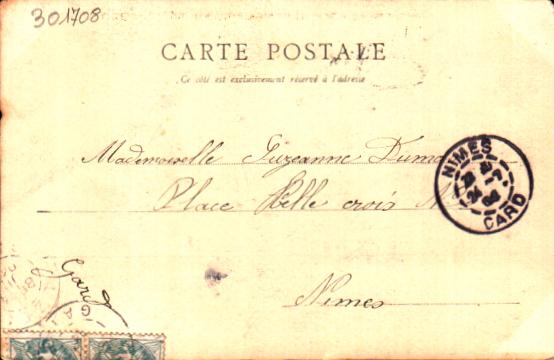 301708
CARTE POSTALE
Ce côté est exclusivement réservé à l'adresse
Mademoiselle Suzanne
Place Belle croix
Nimes
Gard
NIMES
GARD